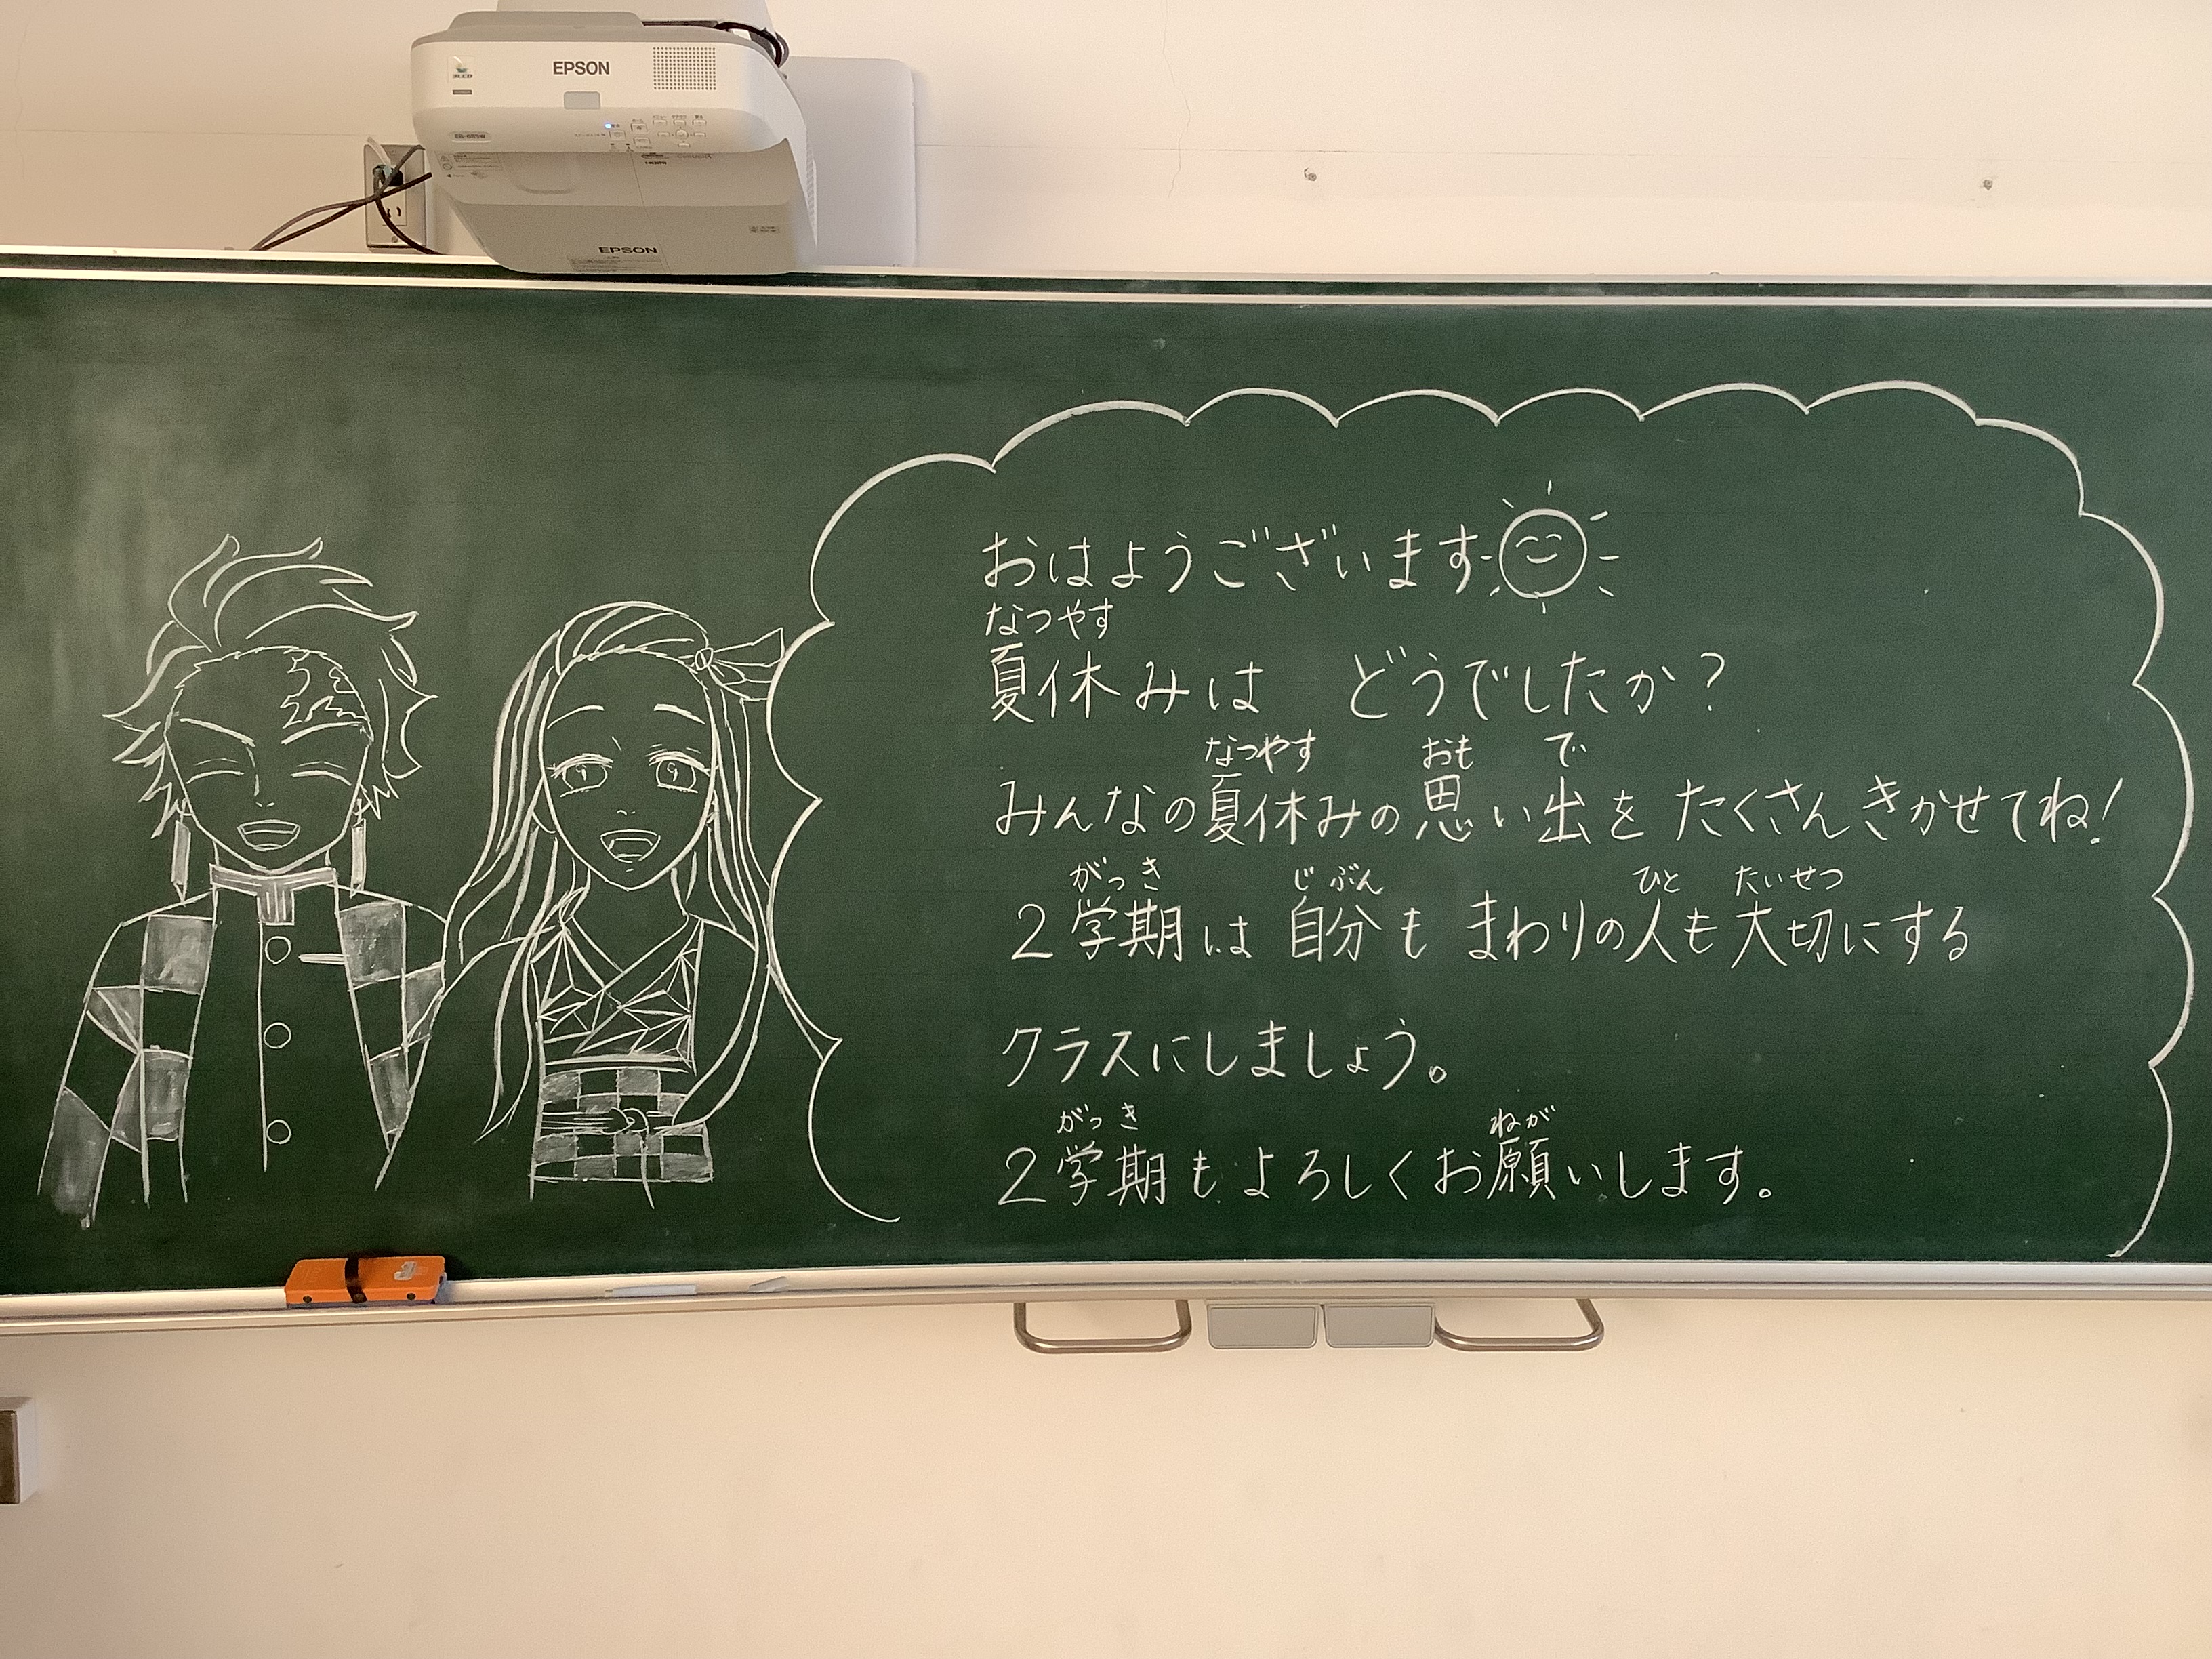 EPSON
EPSON
おはようございます
なつやす
夏休みは どうでしたか?
なつやす おも で
みんなの夏休みの思い出を たくさんきかせてね!
がっき じぶん ひと たいせつ
2学期は 自分も まわりの人も大切にする
クラスにしましょう。
がっき ねが
2学期もよろしくお願いします。